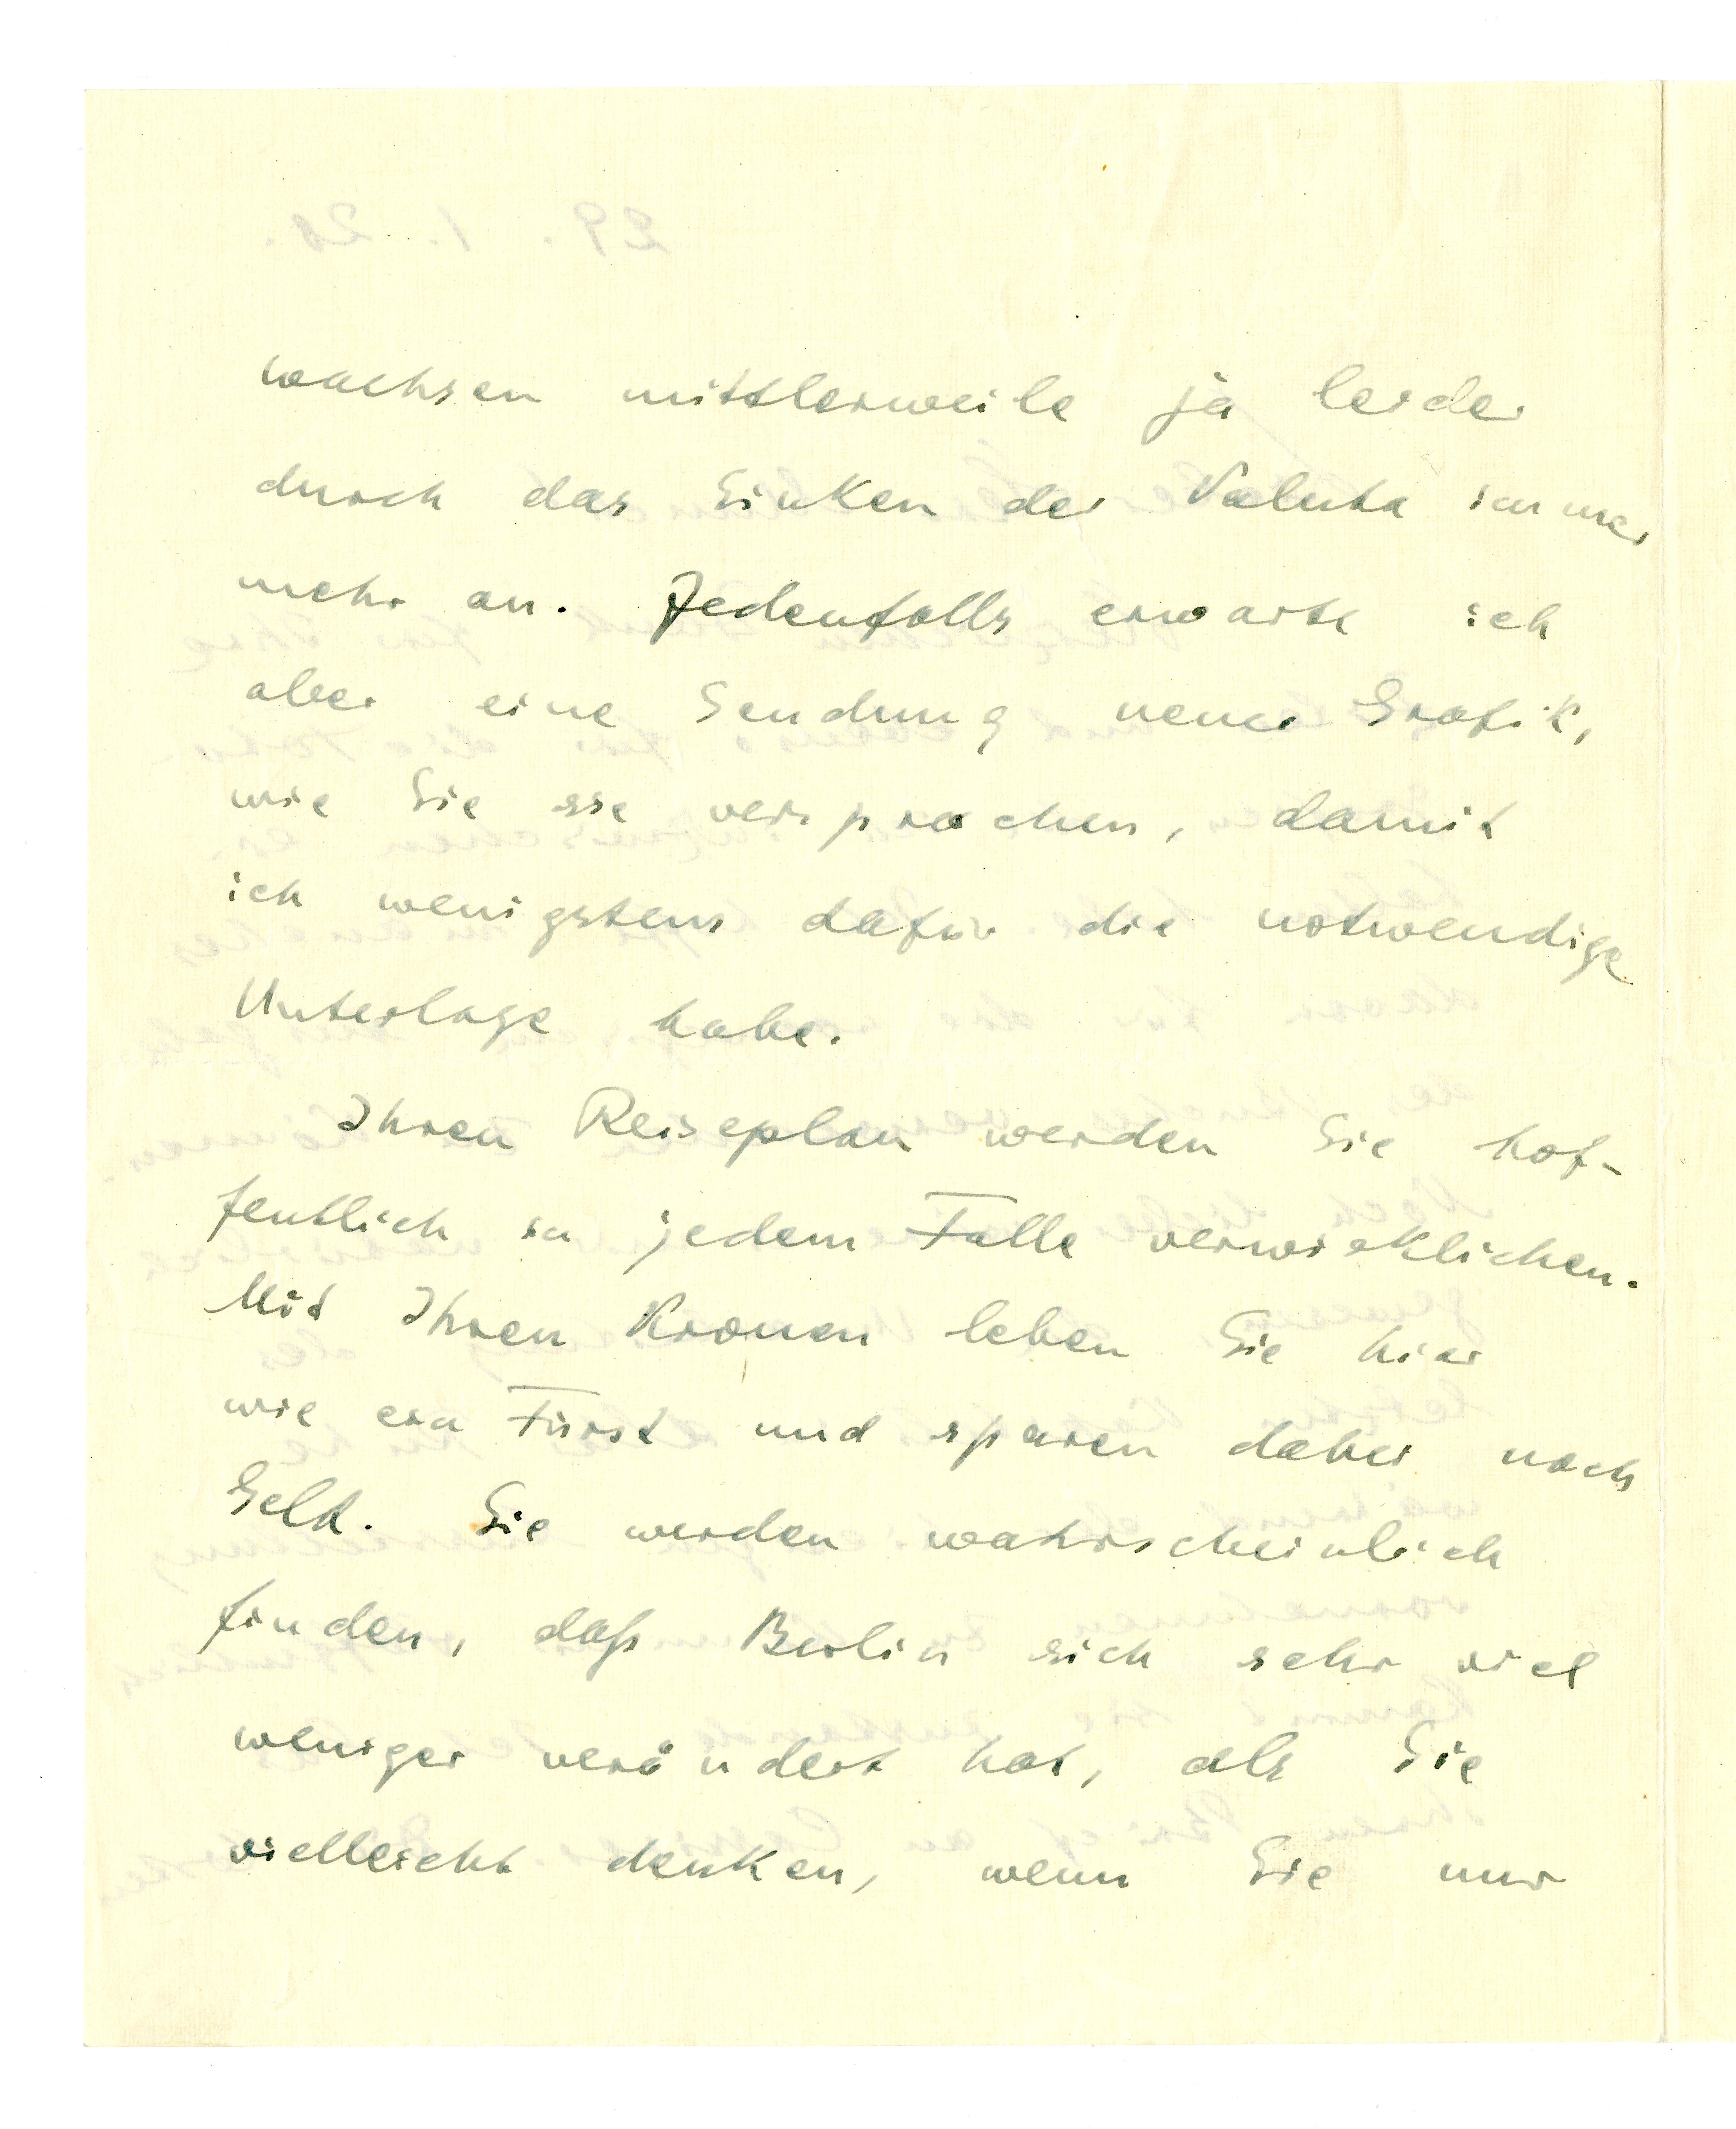 wachsen mittlerweile ja leider
durch das Sinken der Valuta immer
mehr an. Jedenfalls erwarte ich
aber eine Sendung neuer Grafik,
wie Sie sie versprachen, damit
ich wenigstens dafür die notwendige
Unterlage habe.
Ihren Reiseplan werden Sie hof-
fentlich in jedem Falle verwirklichen.
Mit Ihren Kronen leben Sie hier
wie ein Fürst und sparen dabei noch
Geld. Sie werden wahrscheinlich
finden, daß Berlin sich sehr viel
weniger verändert hat, als Sie
vielleicht denken, wenn Sie nur